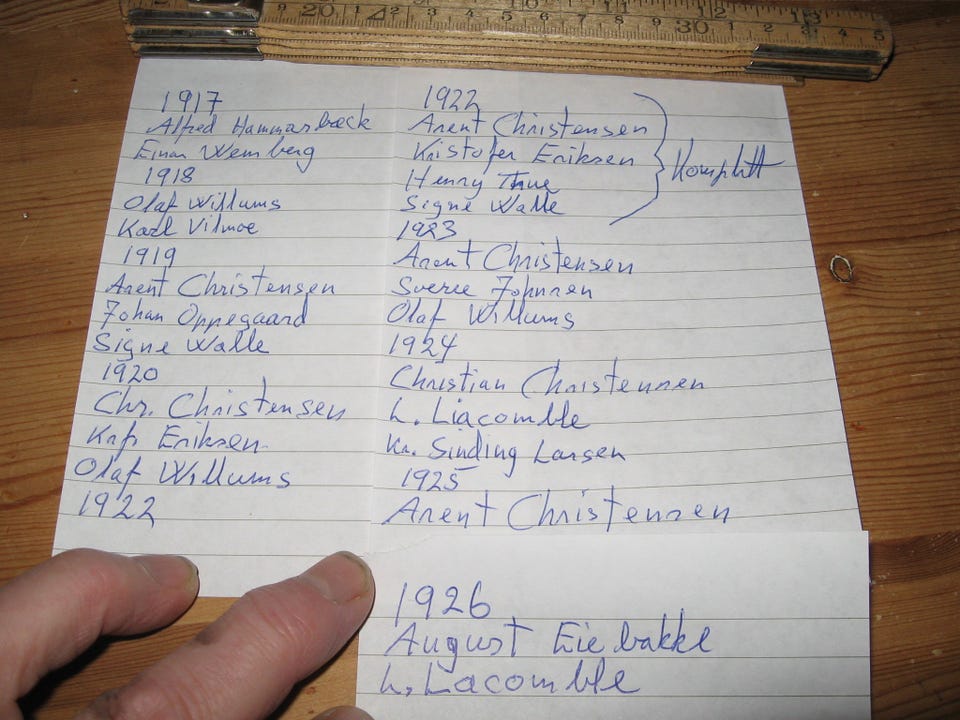 1917
Alfred Hammarbæck
Einar Wemberg
1918
Olaf Willums
Karl Vilmoe
1919
Arent Christensen
Johan Oppegaard
Signe Walle
1920
Chr. Christensen
Olaf Willums
1922
1922
Arent Christensen
Kristofer Eriksen
Henry Thue
Signe Walle
Komplett
1923
Arent Christensen
Sverre Johnsen
Olaf Willums
1924
Christian Christensen
L. Liacomble
Kr. Sinding Larsen
1925
Arent Christensen
1926
August Eiebakke
L. Lacomble